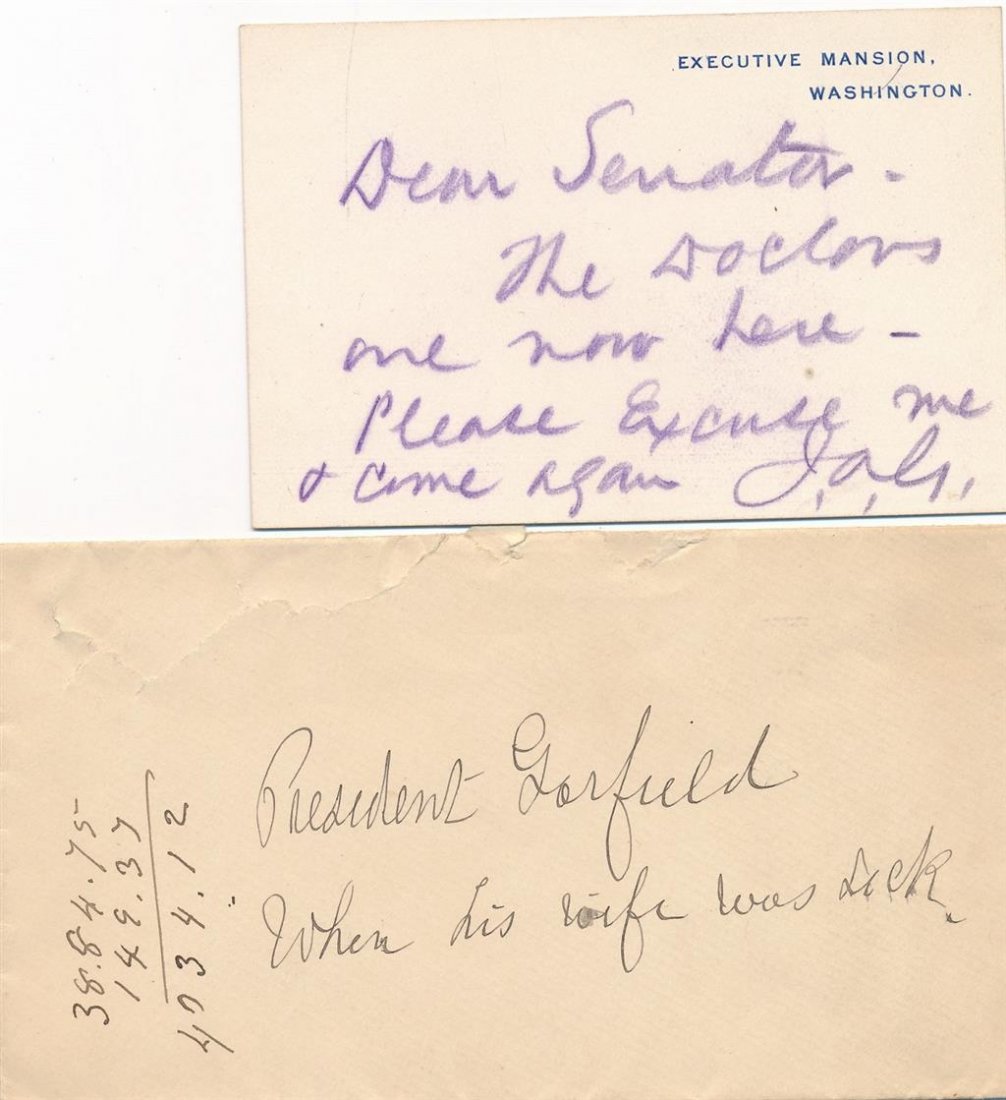 EXECUTIVE MANSION,
WASHINGTON.
Dear Senator -
The Doctors
are now here -
Please Excuse me
& come again J.A.G.,
President Garfield
When his wife was sick.
38.84.75
149.37
4034.12